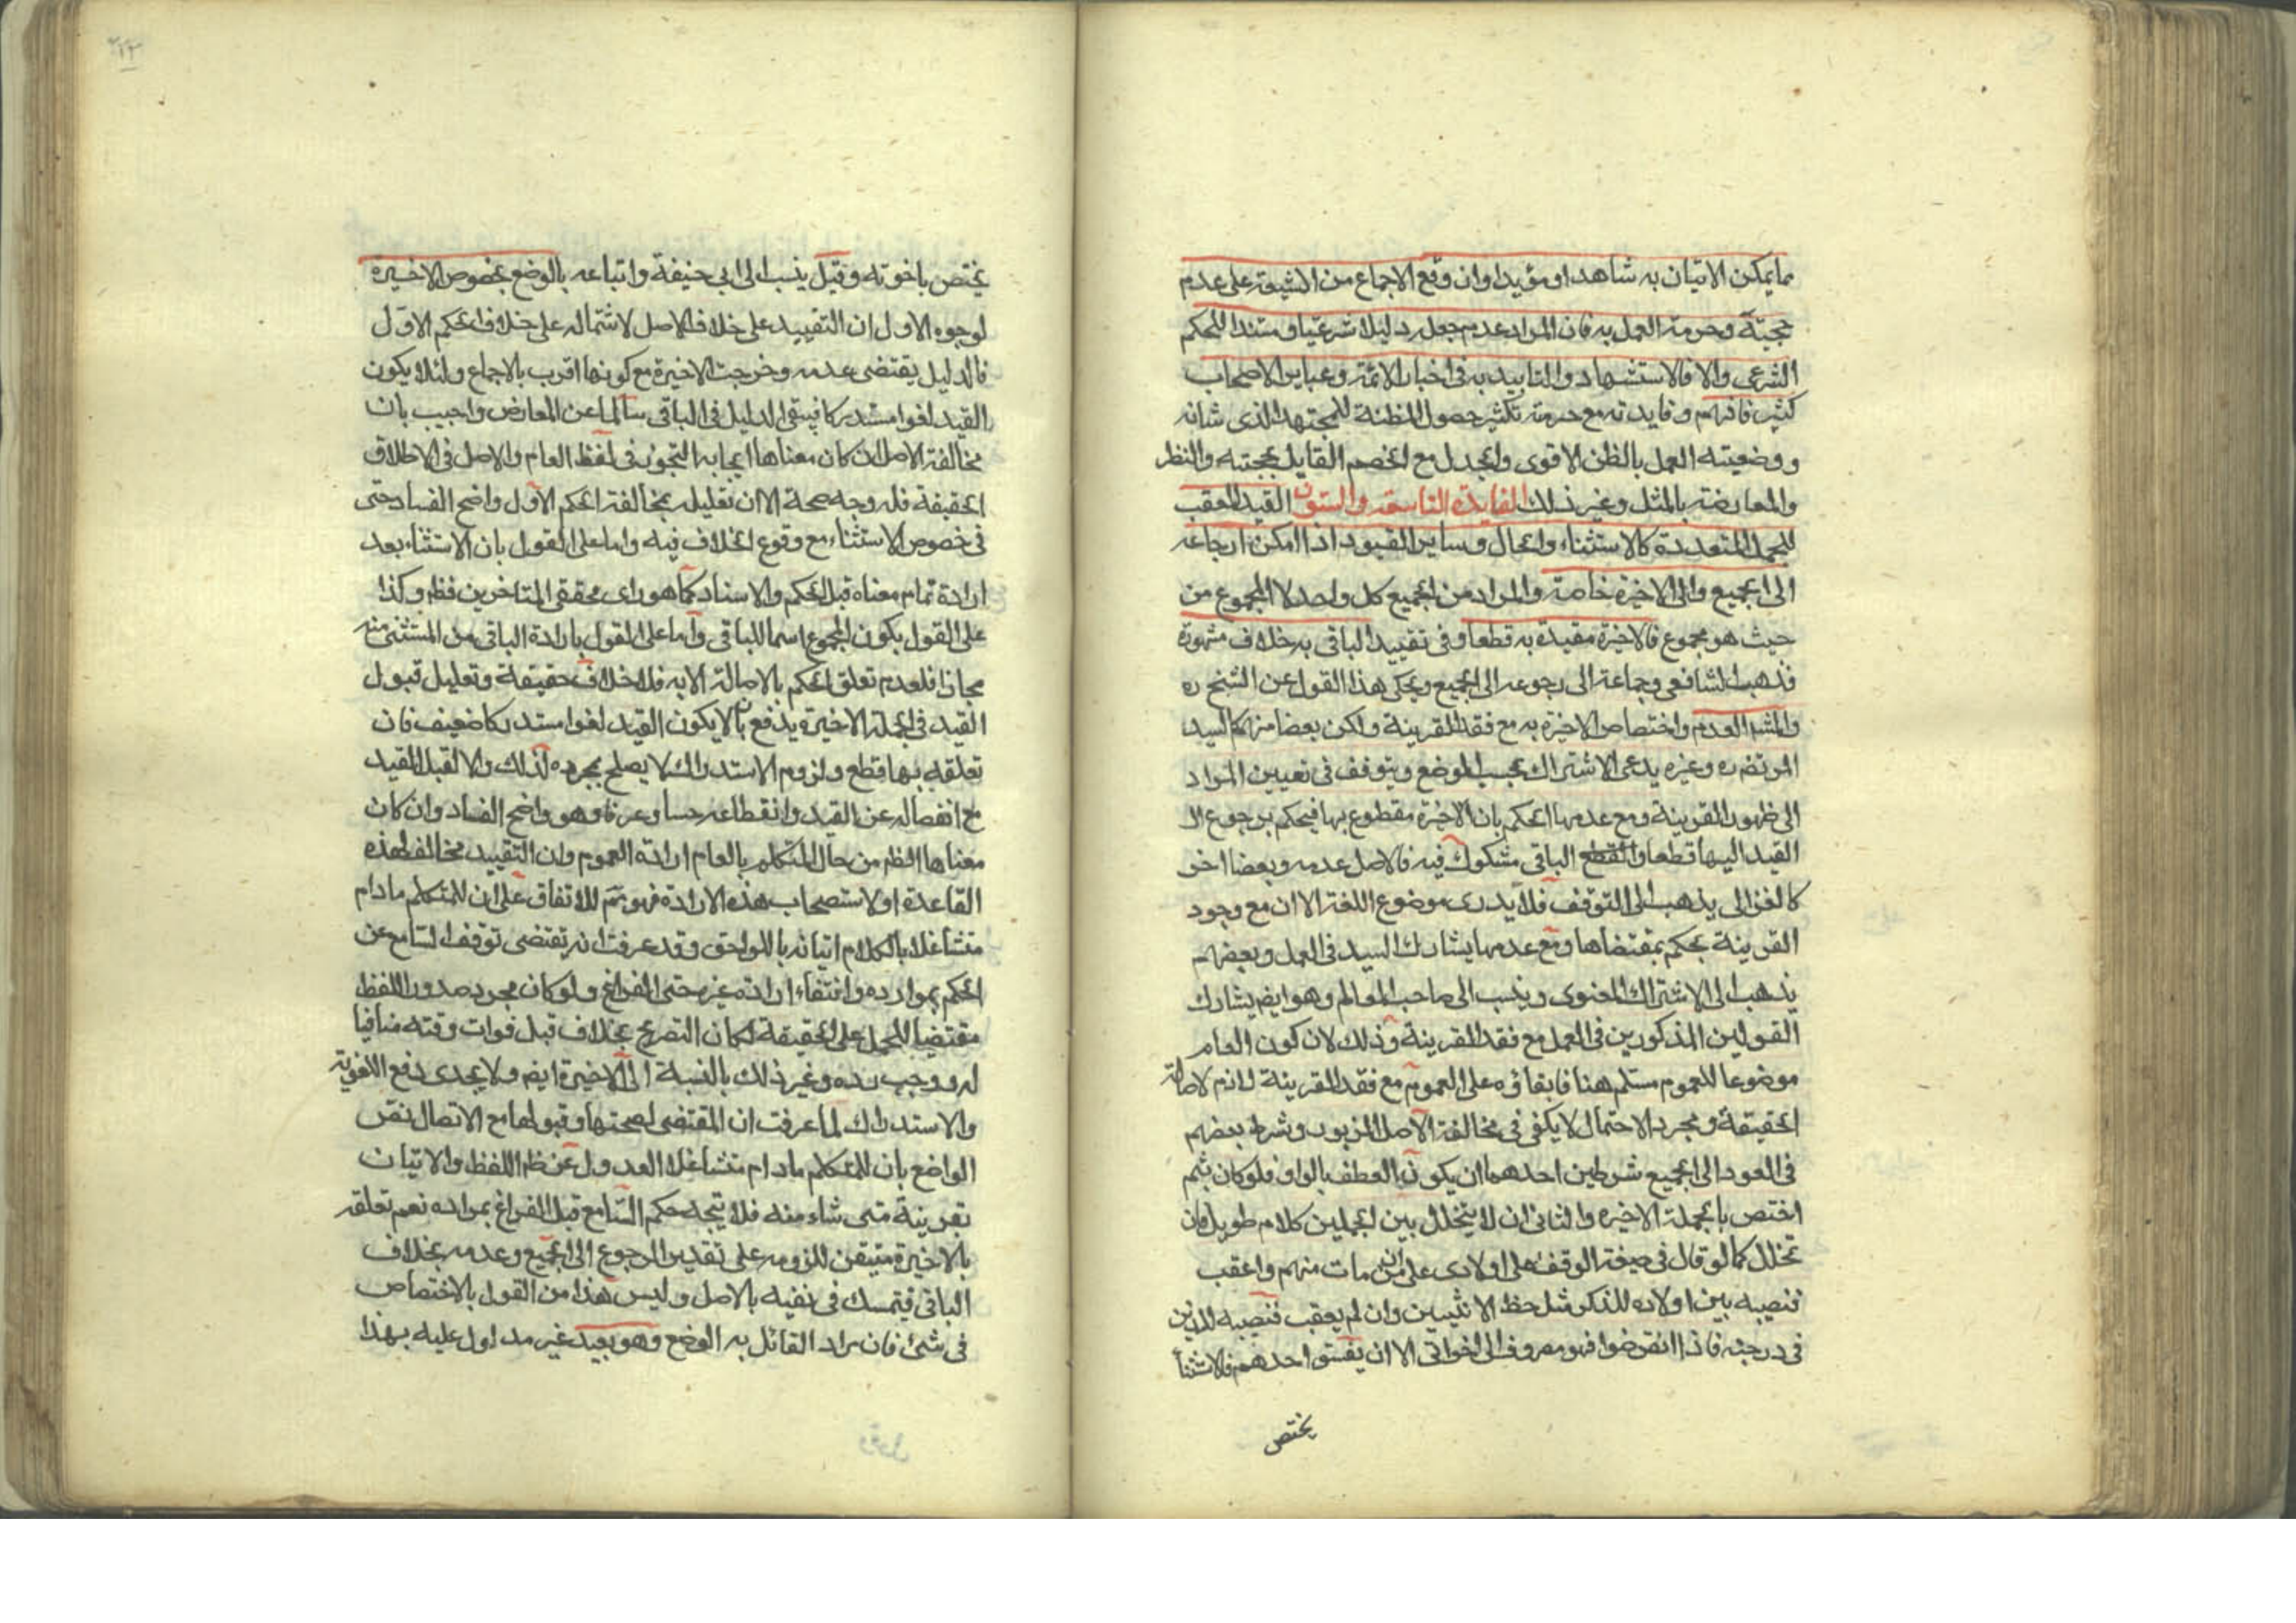 مما يمكن الاتيان به شاهدا او مؤيدا وان وقع الاجماع من الشيعة على عدم
حجيته وحرمة العمل به فان المراد عدم جعله دليلا شرعيا ومستندا للحكم
الشرعى والا فالاستشهاد والتاييد به فى اخبار الائمة وعباير الاصحاب
كثير فافهم وفايدته مع حرمته تكثير حصول المظنة للمجتهد الذى شانه
ووضعيته العمل بالظن الاقوى والجدل مع الخصم القايل بحجيته والنظر
والمعارضة بالمثل وغير ذلك الفايدة التاسعة والستون القيد المعقب
للجمل المتعددة كالاستثناء والحال وساير القيود اذا امكن ارجاعه
الى الجميع والى الاخيرة خاصة والمراد من الجميع كل واحد لا المجموع من
حيث هو مجموع فالاخيرة مقيدة به قطعا وفى تقييد الباقى به خلاف مشهورة
فذهب الشافعى وجماعة الى رجوعه الى الجميع ويحكى هذا القول عن الشيخ ره
والمشهـ العدم واختصاص الاخيرة به مع فقد القرينة ولكن بعضا منهم كالسيد
المرتضى ره وغيره يدعى الاشتراك بحسب الوضع ويتوقف فى تعيين المراد
الى ظهور القرينة ومع عدمها الحكم بان الاخيرة مقطوع بها فيحكم برجوع الـ
القيد اليها قطعا والقطع الباقى مشكوك فيه فالاصل عدمه وبعضا اخر
كالغزالى يذهب الى التوقف فلا يدرى موضوع اللغة الا ان مع وجود
القرينة يحكم بمقتضاها ومع عدمها يشارك السيد فى العمل وبعضهم
يذهب الى الاشتراك المعنوى وينسب الى صاحب المعالم وهو ايضـ يشارك
القولين المذكورين فى العمل مع فقد القرينة وذلك لان كون العام
موضوعا للعموم مسلم هنا فابقاؤه على العموم مع فقد القرينة لازم لاصالة
الحقيقة ومجرد الاحتمال لا يكفى فى مخالفة الاصل المزبور وشرط بعضهم
فى العود الى الجميع شرطين احدهما ان يكون العطف بالواو فلو كان بثم
اختص بالجملة الاخيرة والثانى ان لا يتخلل بين الجملين كلام طويل فان
تخلل كما لو قال فى صيغة الوقف على اولادى على ان من مات منهم واعقب
فنصيبه بين اولاده للذكر مثل حظ الانثيين وان لم يعقب فنصيبه للذين
فى درجته فاذا انقرضوا فهو مصروف الى اخواتى الا ان يفسق احدهم فالاستثنأ
يختص
يختص باخوته وقيل ينسب الى ابى حنيفة واتباعه بالوضع بخصوص الاخيرة
لوجوه الاول ان التقييد على خلاف الاصل لاشتماله على خلاف الحكم الاول
فالدليل يقتضى عدمه وخرجت الاخيرة مع كونها اقرب بالاجماع ولئلا يكون
القيد لغوا مستدركا فيبقى الدليل فى الباقى سالما عن المعارض واجيب بان
مخالفة الاصل ان كان معناها ايجابه التجوز فى لفظ العام والاصل فى الاطلاق
الحقيقة فله وجه صحة الا ان تعليله بمخالفة الحكم الاول واضح الفساد حتى
فى خصوص الاستثناء مع وقوع الخلاف فيه واما على القول بان الاستثناء بعد
ارادة تمام معناه قبل الحكم والاسناد كما هو راى محققى المتاخرين فظ وكذا
على القول بكون المجموع اسما للباقى واما على القول بارادة الباقى من المستثنى منه
مجازا فلعدم تعلق الحكم بالاصالة الا به فلا خلاف حقيقة وتعليل قبول
القيد فى الجملة الاخيرة يدفع بان لا يكون القيد لغوا مستدركا ضعيف فان
تعلقه بها قطع ولزوم الاستدراك لا يصلح بمجرده لذلك والا لقبل المقيد
مع انفصاله عن القيد وانقطاعه حسا وعرفا وهو واضح الفساد وان كان
معناها الظ من حال المتكلم بالعام ارادة العموم وان التقييد مخالف لهذه
القاعدة او لاستصحاب هذه الارادة فهو تم للاتفاق على ان للمتكلم مادام
متشاغلا بالكلام اتيانه باللواحق وقد عرفت انه تقتضى توقف السامع عن
الحكم بموارده وانتفاء ارادة غيره حتى الفراغ ولو كان مجرد صدور اللفظ
مقتضيا للحمل على الحقيقة لكان التصريح بخلاف قبل فوات وقته منافيا
له ووجب رده وغير ذلك بالنسبة الى الاخيرة ايضـ ولا يجدى دفع اللغوية
والاستدراك لما عرفت ان المقتضى لصحتها وقبولها مع الاتصال نص
الواضع بان للمتكلم مادام متشاغلا العدول عن ظـ اللفظ والاتيان
بقرينة متى شاء منه فلا يتجه حكم السامع قبل الفراغ بمراده نعم تعلقه
بالاخيرة متيقن للزومه على تقدير الرجوع الى الجميع وعدمه بخلاف
الباقى فيتمسك فى نفيه بالاصل وليس هذا من القول بالاختصاص
فى شئ فان مراد القائل به الوضع وهو بعيد غير مدلول عليه بهذا